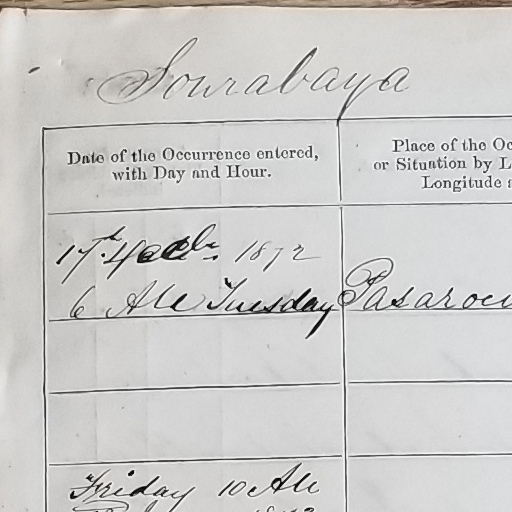 Sourabaya
Date of the Occurrence entered,
with Day and Hour.
Place of the Oc
or Situation by L
Longitude a
17th 1872
6 AM Tuesday Pasaroe
Friday 10 AM